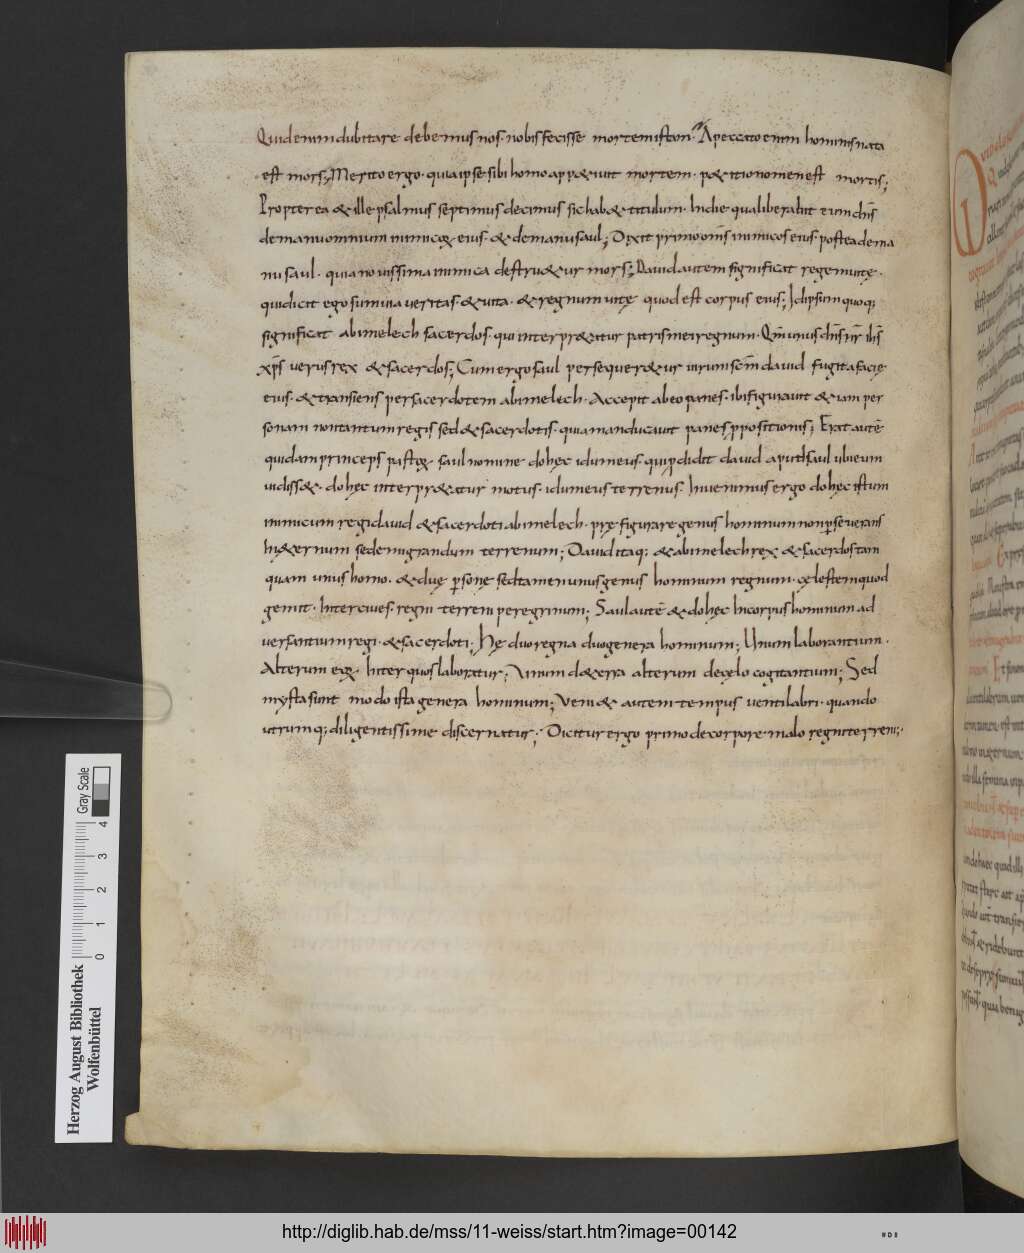 Quid enim dubitare debemus nos · nobis fecisse mortem istam? A peccato enim hominis nata
est mors; Merito ergo · quia ipse sibi homo app&iuit mortem · p&itionomen est mortis;
Propterea & ille psalmus septimus decimus sic hab& titulum · In die qua liberabit eum dns̄
demanu omnium inimicoꝝ eius · & demanu saul; Dixit primo oms̄ inimicos eius · postea dema
nu saul · quia nouissima inimica destru&ur mors; Dauid autem significat regem uitę ·
qui dicit ego sum uia ueritas · & uita · & regnum uitę quod est corpus eius; Id ipsum quoq;
significat abimelech sacerdos · qui interpr&atur patris mei regnum · Qm̄ unus dns̄ nr̄ ihs̄
xp̄s uerus rex & sacerdos; Cum ergo saul persequer&ur uirum scm̄ dauid fugit a facie
eius · & transiens per sacerdotem abimelech · Accepit ab eo panes · ibi figurauit & iam per
sonam non tantum regis sed & sacerdotis · quia manducauit panes ppositionis; Erat autē
quidam princeps pastoꝝ saul nomine dohec idumeus · qui pdidit dauid apud saul ubi eum
uidiss& · dohec interpr&atur motus · idumeus terrenus · Inuenimus ergo dohec istum
inimicum regi dauid & sacerdoti abimelech · prę figurare genus hominum non pseuerans
In &ernum sed emigrandum terrenum; Dauid itaq; & abimelech rex & sacerdos tam
quam unus homo · & duę psonę sed tamen unus genus hominum regnum · cęleste m quod
gemit · Inter ciues regni terreni peregrinum; Saul autē & dohec In corpus hominum ad
uersantium regi · & sacerdoti; Hę duo regna duo genera hominum; Unum laborantium ·
Alterum eoꝝ · Inter quos laboratur; Unum d&erra alterum decęlo cogitantium; Sed
myxta sunt modo ista genera hominum; Veni& autem tempus uentilabri · quando
utrumq; diligentissime discernatur; Dicitur ergo primo de corpore malo regni terreni;
Herzog August Bibliothek
Wolfenbüttel
0 1 2 3 4
Gray Scale
http://diglib.hab.de/mss/11-weiss/start.htm?image=00142